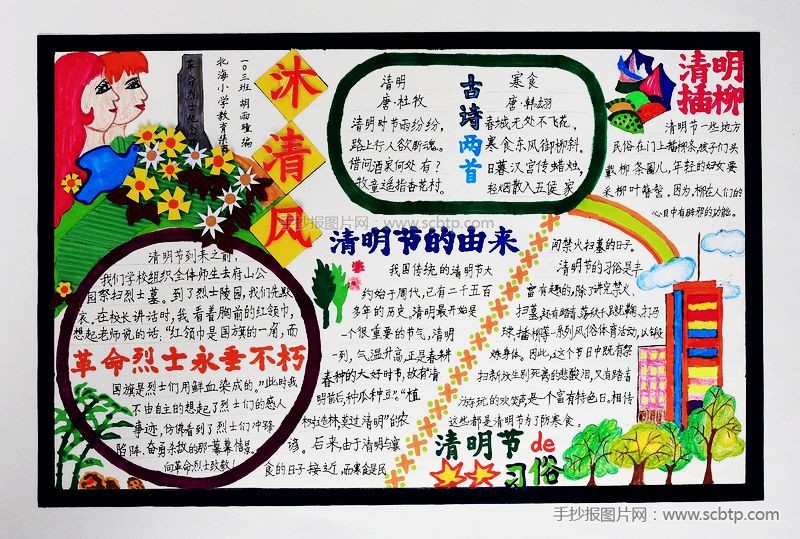 沐清风
一〇三班 胡雨瞳 编
北海小学教育集团
革命烈士纪念
古诗两首
清明
唐·杜牧
清明时节雨纷纷，
路上行人欲断魂。
借问酒家何处有？
牧童遥指杏花村。
寒食
唐·韩翃
春城无处不飞花，
寒食东风御柳斜。
日暮汉宫传蜡烛，
轻烟散入五侯家
清明
插柳
清明节一些地方
民俗在门上插柳条，孩子们头
戴柳条圈儿，年轻的妇女要
采柳叶簪髻。因为，柳在人们的
心目中有辟邪的功能。
手抄报图片网：www.scbtp.com
清明节到来之前，
我们学校组织全体师生去府山公
园祭扫烈士墓。到了烈士陵园，我们先默
哀。在校长讲话时，我看着胸前的红领巾，
想起老师说的话："红领巾是国旗的一角，而
革命烈士永垂不朽
国旗是烈士们用鲜血染成的。"此时我
不由自主的想起了烈士们的感人
事迹，仿佛看到了烈士们冲锋
陷阵、奋勇杀敌的那一幕幕情景。
向革命烈士致敬！
清明节的由来
我国传统的清明节大
约始于周代，已有二千五百
多年的历史。清明最开始是
一个很重要的节气，清明
一到，气温升高，正是春耕
春种的大好时节，故有"清
明前后，种瓜种豆"。"植
树造林，莫过清明"的农
谚。后来，由于清明与寒
食的日子接近，而寒食是民
间禁火扫墓的日子。
清明节的习俗是丰
富有趣的，除了讲究禁火、
扫墓，还有踏青、荡秋千、踢蹴鞠、打马
球、插柳等一系列风俗体育活动，以锻
炼身体。因此，这个节日中既有祭
扫新坟生别死离的悲酸泪，又有踏青
游玩的欢笑声，是一个富有特色日。相传
这些都是清明节为了防寒食。
清明节de
习俗
手抄报图片网：www.scbtp.com